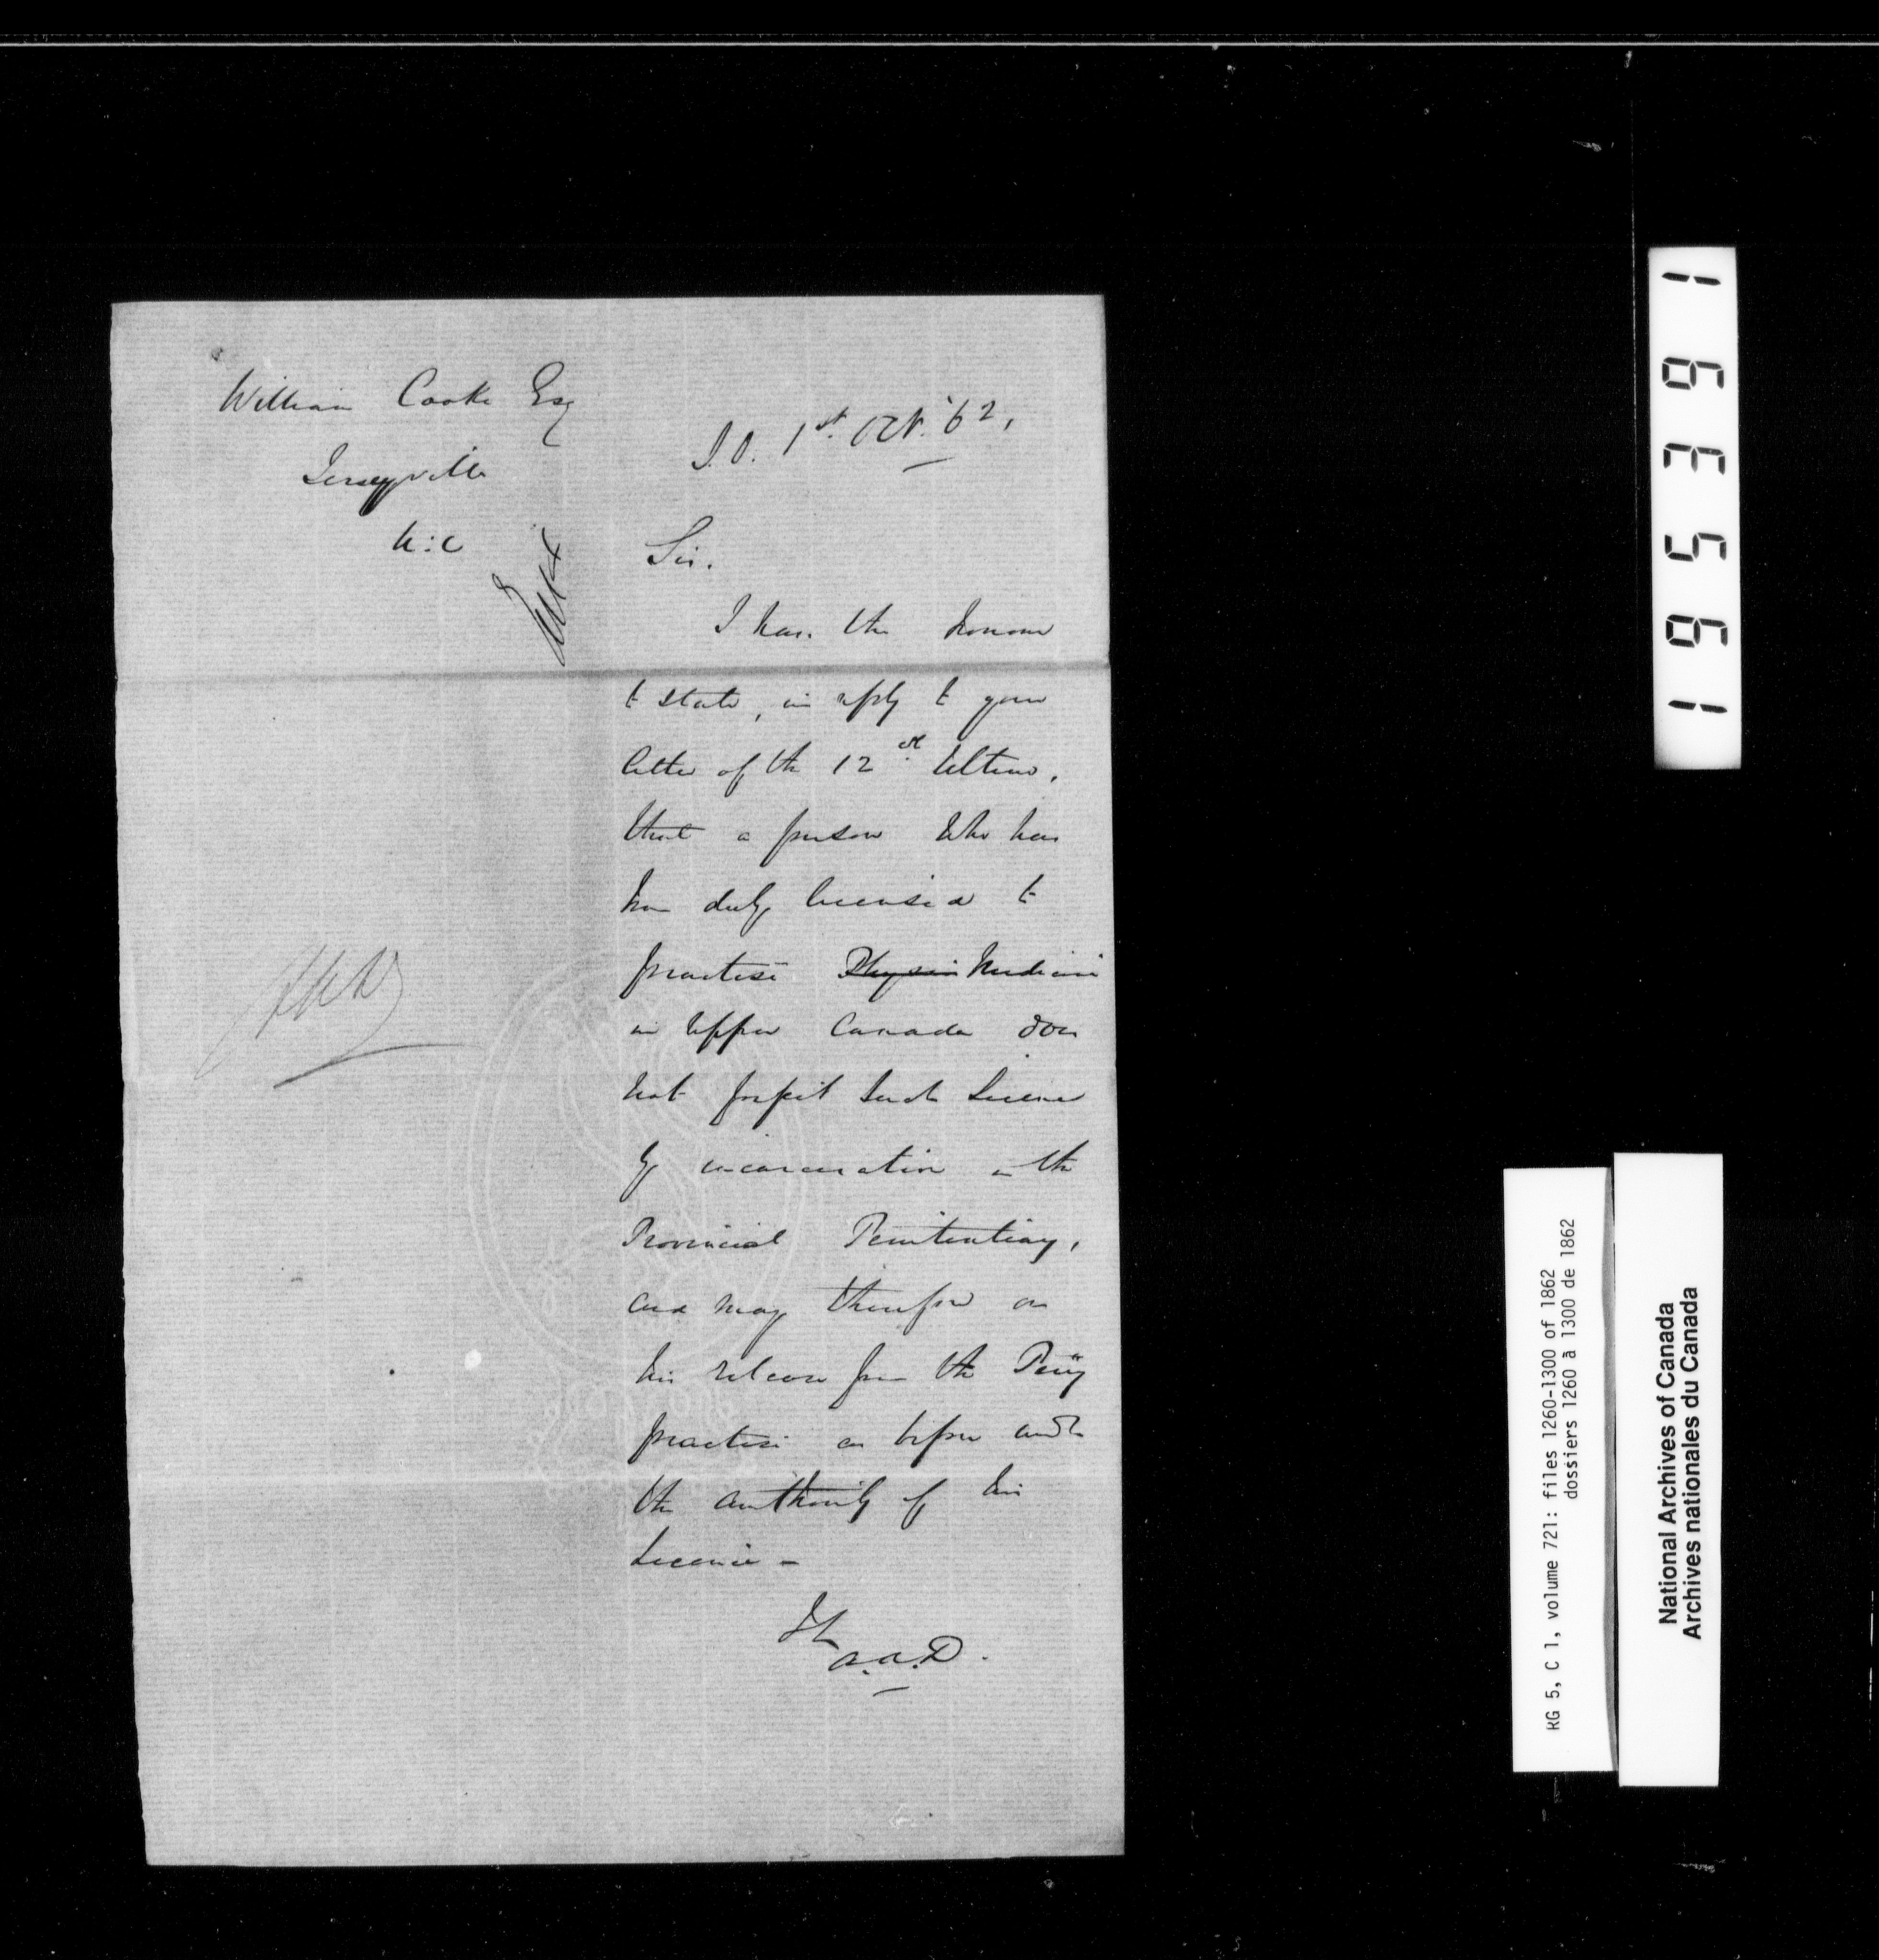 William Cooke Esq
Jerseyville
U:C
S.O. 1st Oct. '62,
Sir.
I have the honour
to state, in reply to your
letter of the 12th Ultimo,
that a person who has
been duly licensed to
practise Physic Medicine
in Upper Canada does
not forfeit such License
by incarceration in the
Provincial Penitentiary,
and may therefore on
his release from the Peny
practise as before under
the authority of his
License -
A.A.D.
196539 1
RG 5, C 1, volume 721: files 1260-1300 of 1862
dossiers 1260 à 1300 de 1862
National Archives of Canada
Archives nationales du Canada